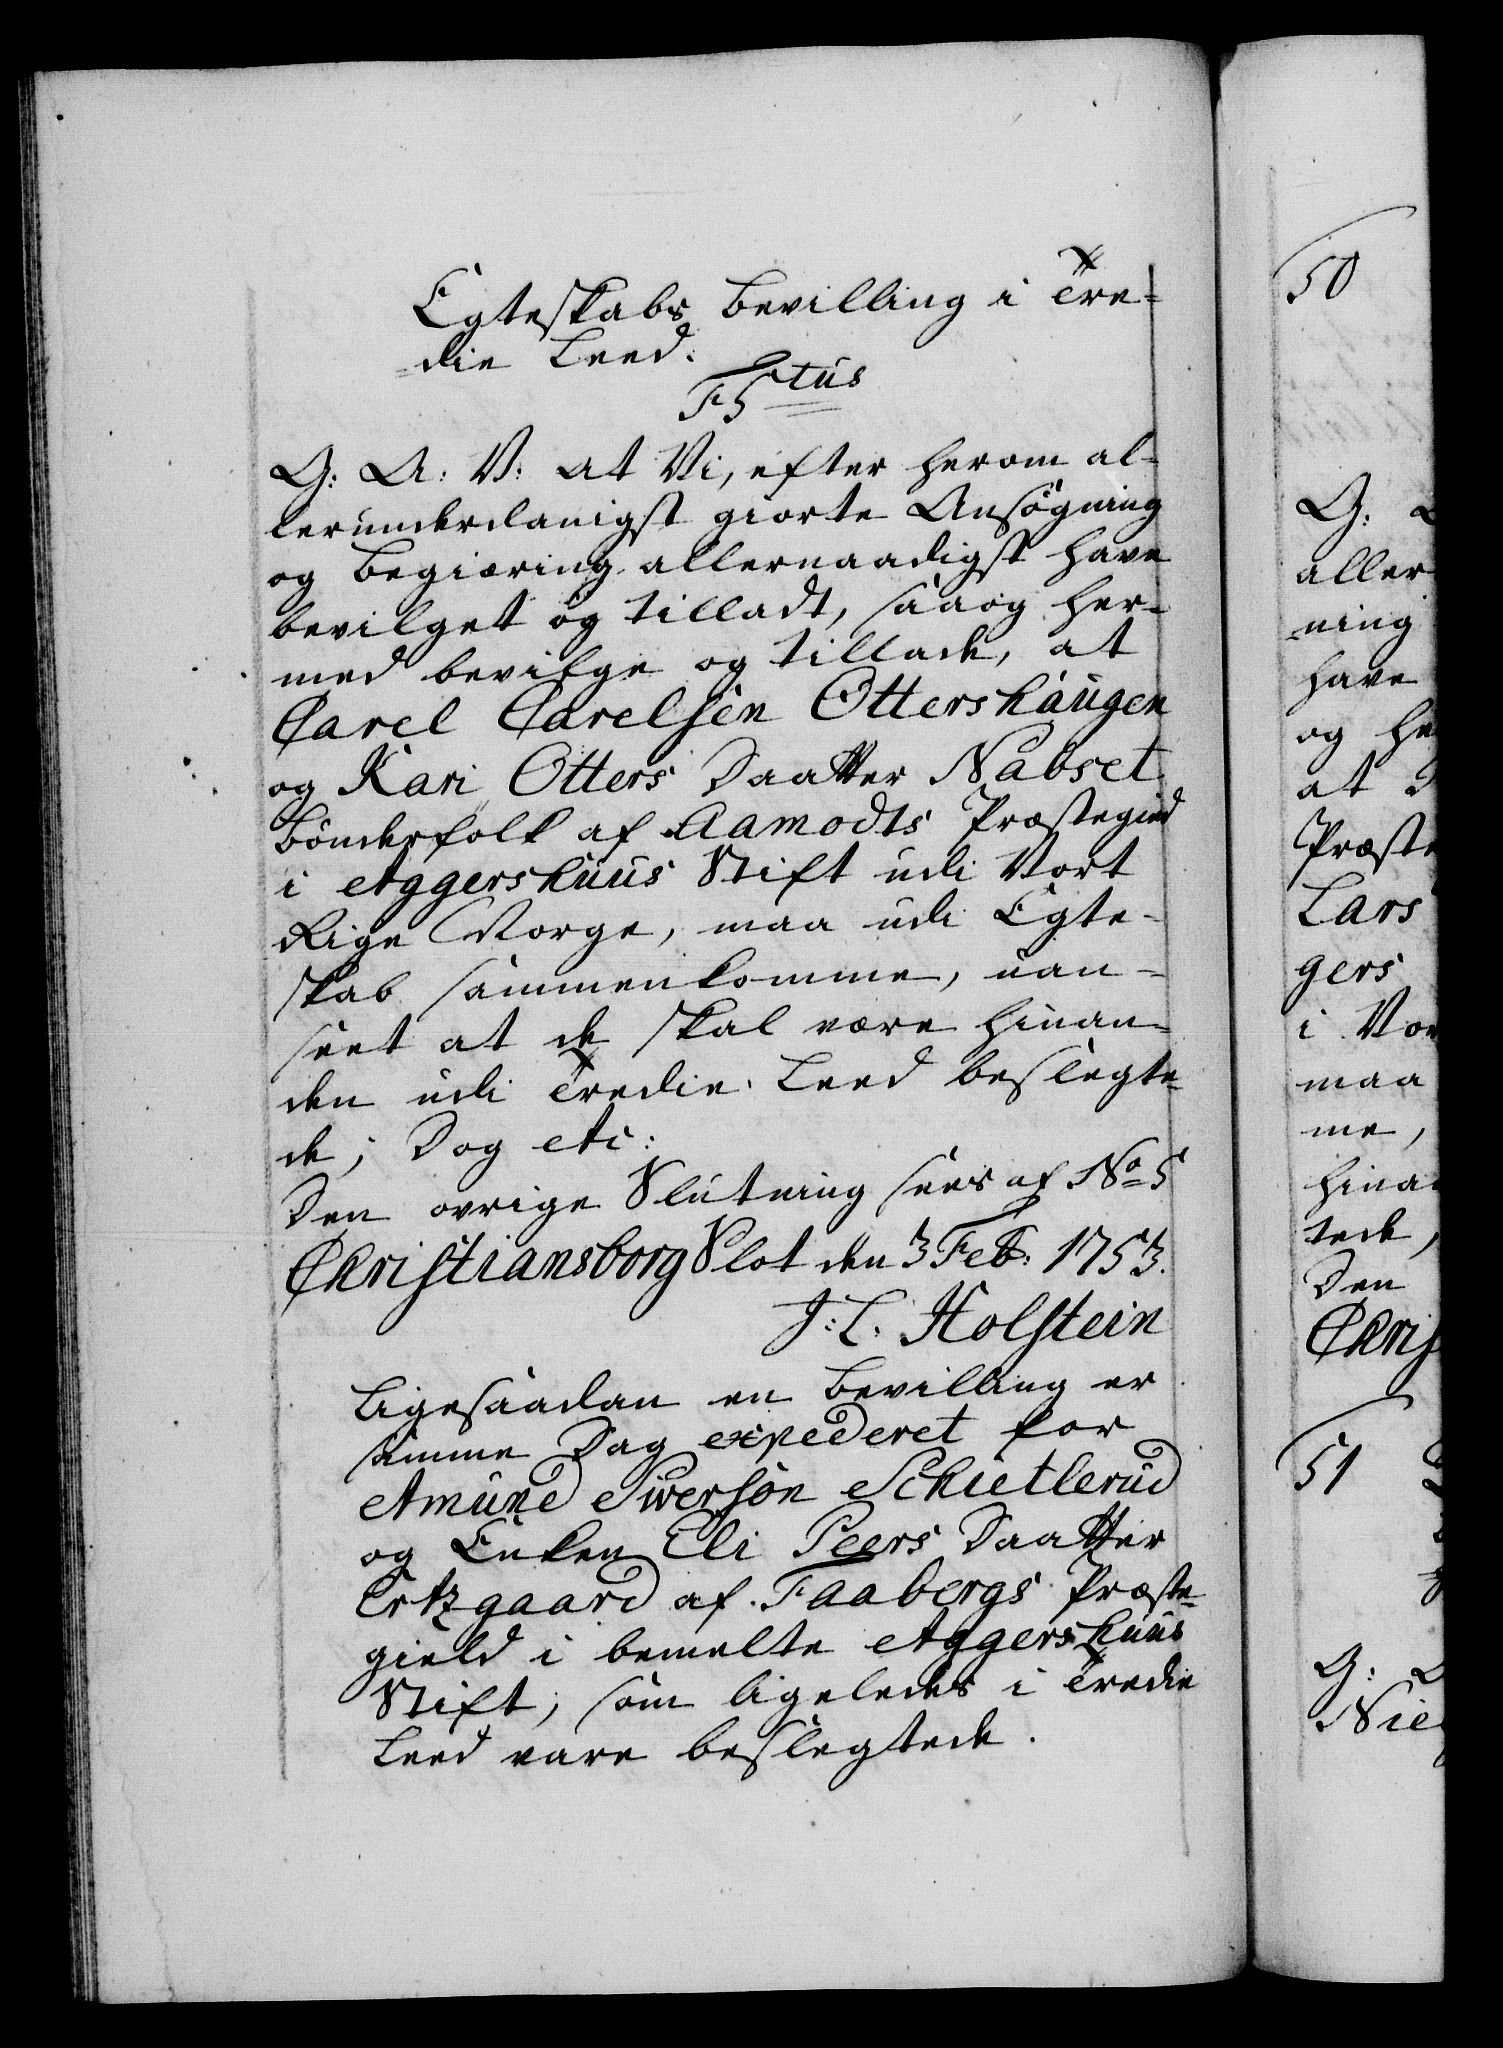 Egteskabs Bevilling i Tre-
die Leed.
F5tus
G: A: V: at Vi, efter herom al-
lerunderdanigst giorte Ansøgning
og Begiæring allernaadigst have
bevilget og tilladt, saa og her-
med bevilge og tillade, at
Carel Carelsen Ottershaugen
og Kari Otters Daatter Nabset
Bønderfolk af Aamodts Præstegield
i Aggershuus Stift udi Vort
Rige Norge, maa udi Egte-
skab sammenkomme, uan-
seet at de skal være hinan-
den udi Tredie Leed beslegte-
de; Dog etc:
Den øvrige Slutning sees af No 5
Christiansborg Slot den 3 Feb: 1753.
J: L. Holstein
Ligesaadan en Bevilling er
samme Dag expederet for
Amund Siversøn Schietlerud
og Enken Eli Peers Daatter
Ertzgaard af Faabergs Præste-
gield i bemelte Aggershuus
Stift, som ligeledes i Tredie
Leed vare beslegtede.
50
G:
aller
ning
have
og he
at
Præste
Lars
gers
i Vor
maa
me,
hina
tede,
Den
Chris
51
G:
Nie